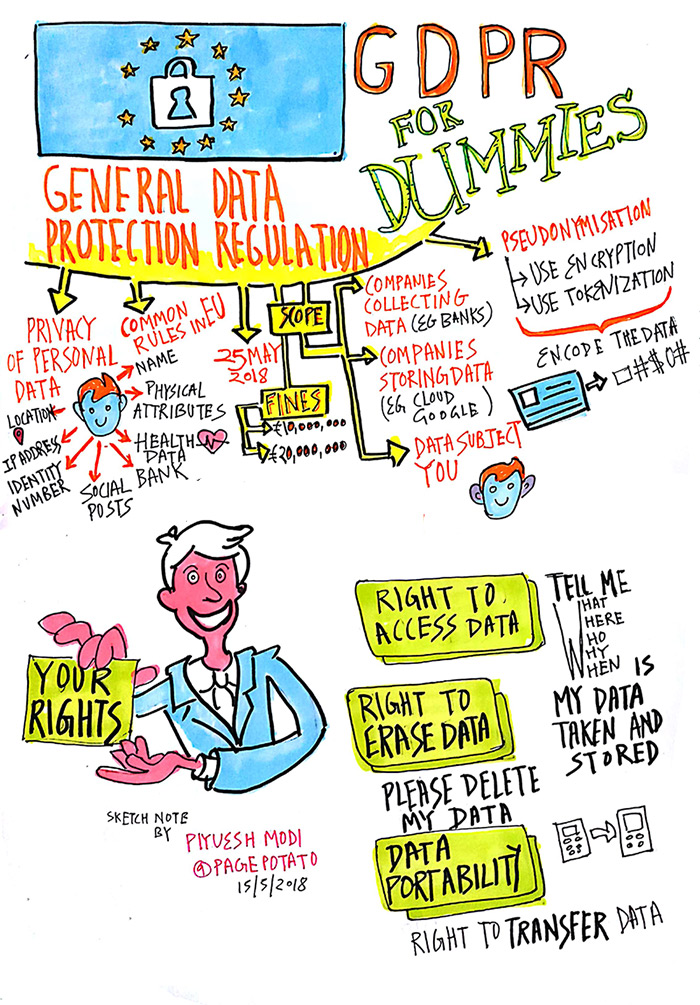 GDPR
FOR
DUMMIES
GENERAL DATA
PROTECTION REGULATION
PRIVACY
OF PERSONAL
DATA
LOCATION
IP ADDRESS
IDENTITY
NUMBER
SOCIAL
POSTS
HEALTH
DATA
BANK
PHYSICAL
ATTRIBUTES
NAME
COMMON
RULES IN EU
25 MAY
2018
SCOPE
FINES
€10,000,000
€20,000,000
COMPANIES
COLLECTING
DATA (EG BANKS)
COMPANIES
STORING DATA
(EG CLOUD
GOOGLE)
DATA SUBJECT
YOU
PSEUDONYMISATION
USE ENCRYPTION
USE TOKENIZATION
ENCODE THE DATA
□#$0#
YOUR
RIGHTS
SKETCH NOTE
BY
PIYUESH MODI
@PAGEPOTATO
15/5/2018
RIGHT TO
ACCESS DATA
TELL ME
WHAT
WHERE
WHO
WHY
WHEN IS
MY DATA
TAKEN AND
STORED
RIGHT TO
ERASE DATA
PLEASE DELETE
MY DATA
DATA
PORTABILITY
RIGHT TO TRANSFER DATA